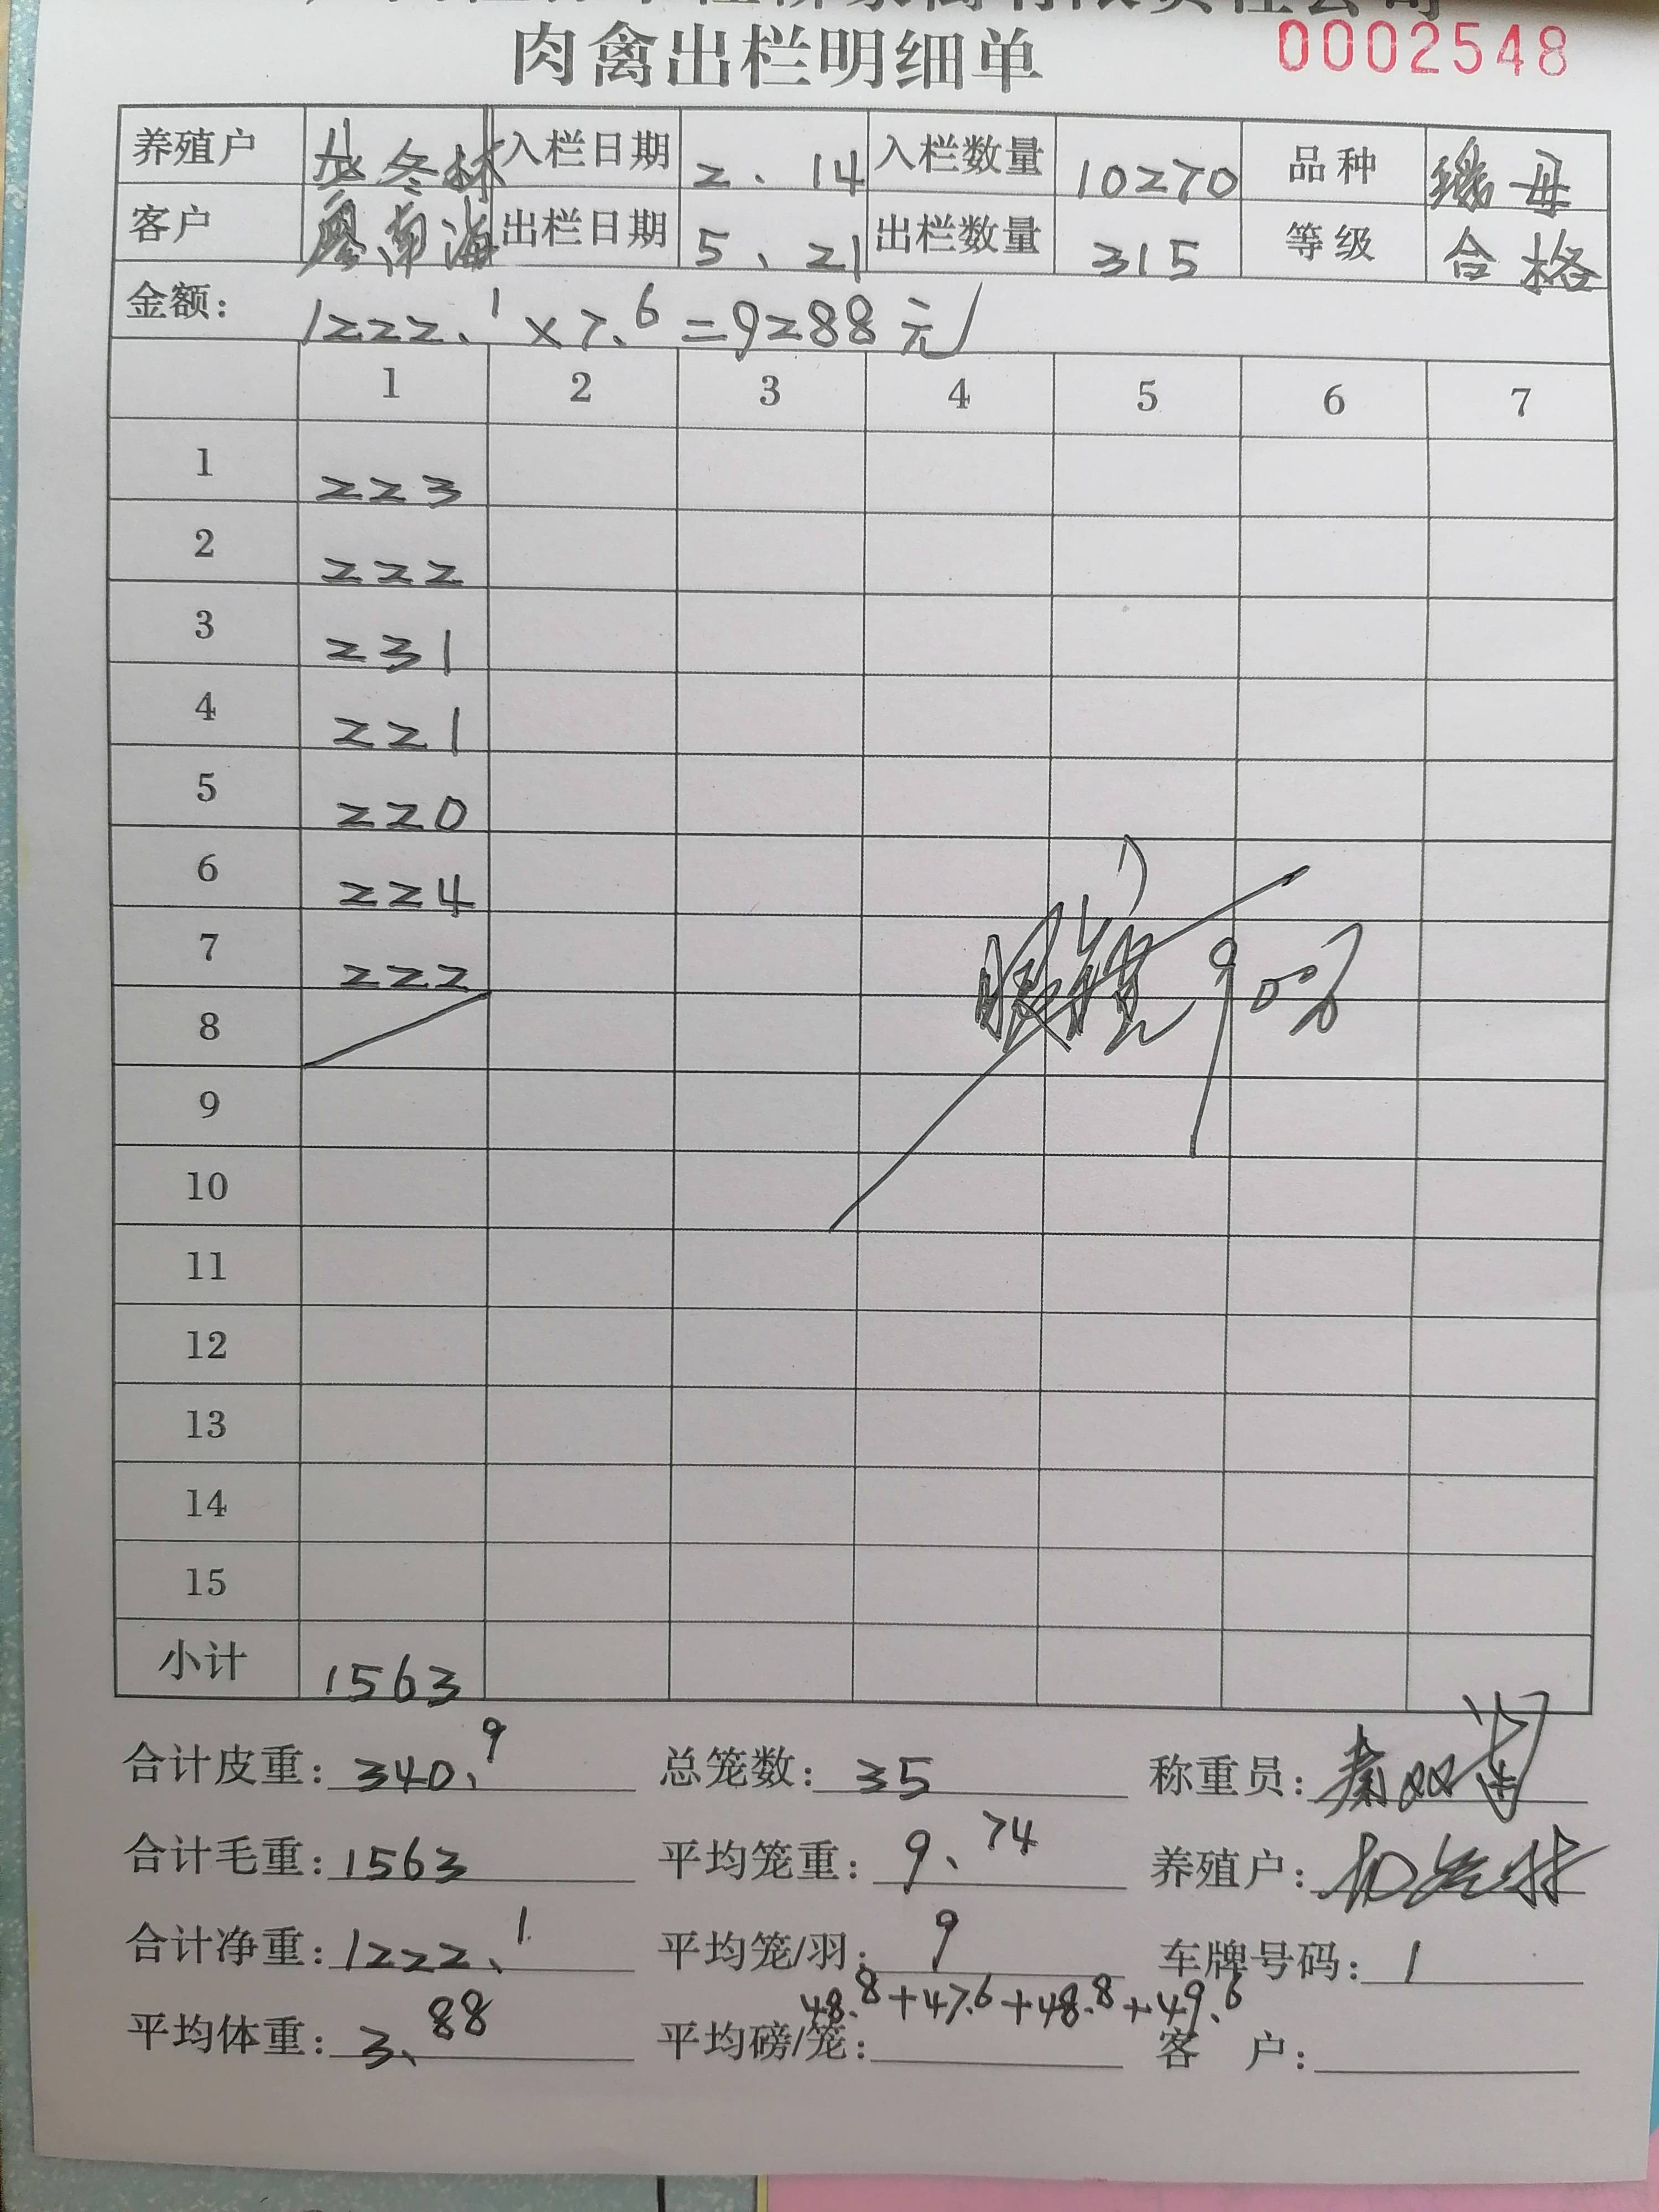 肉禽出栏明细单 0002548
养殖户 冬林 入栏日期 2.14 入栏数量 10270 品种 母
客户 廖南海 出栏日期 5.21 出栏数量 315 等级 合格
金额: 1222.1×7.6=9288元
1 2 3 4 5 6 7
1 223
2 222
3 231
4 221
5 220
6 224
7 222
眼镜90%
8
9
10
11
12
13
14
15
小计 1563
合计皮重: 340.9 总笼数: 35 称重员: 秦双
合计毛重: 1563 平均笼重: 9.74 养殖户:
合计净重: 1222.1 平均笼/羽: 9 车牌号码: 1
48.8+47.6+48.8+49.6
平均体重: 3.88 平均磅/笼: 客 户: